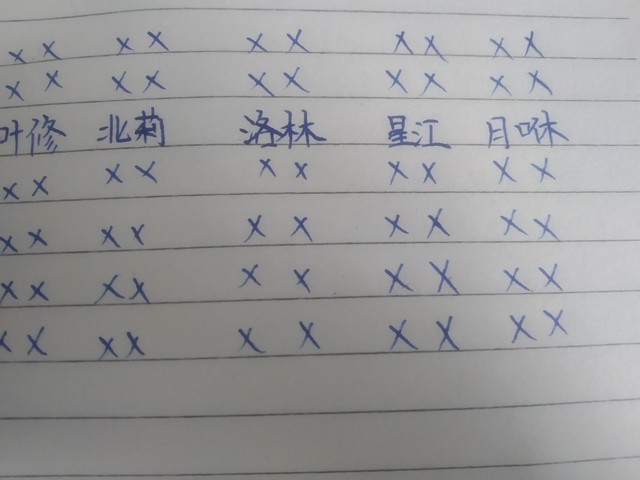 ×× ×× ×× ×× ××
×× ×× ×× ×× ××
叶修 北莉 洛林 星江 月咻
×× ×× ×× ×× ××
×× ×× ×× ×× ××
×× ×× ×× ×× ××
×× ×× ×× ×× ××